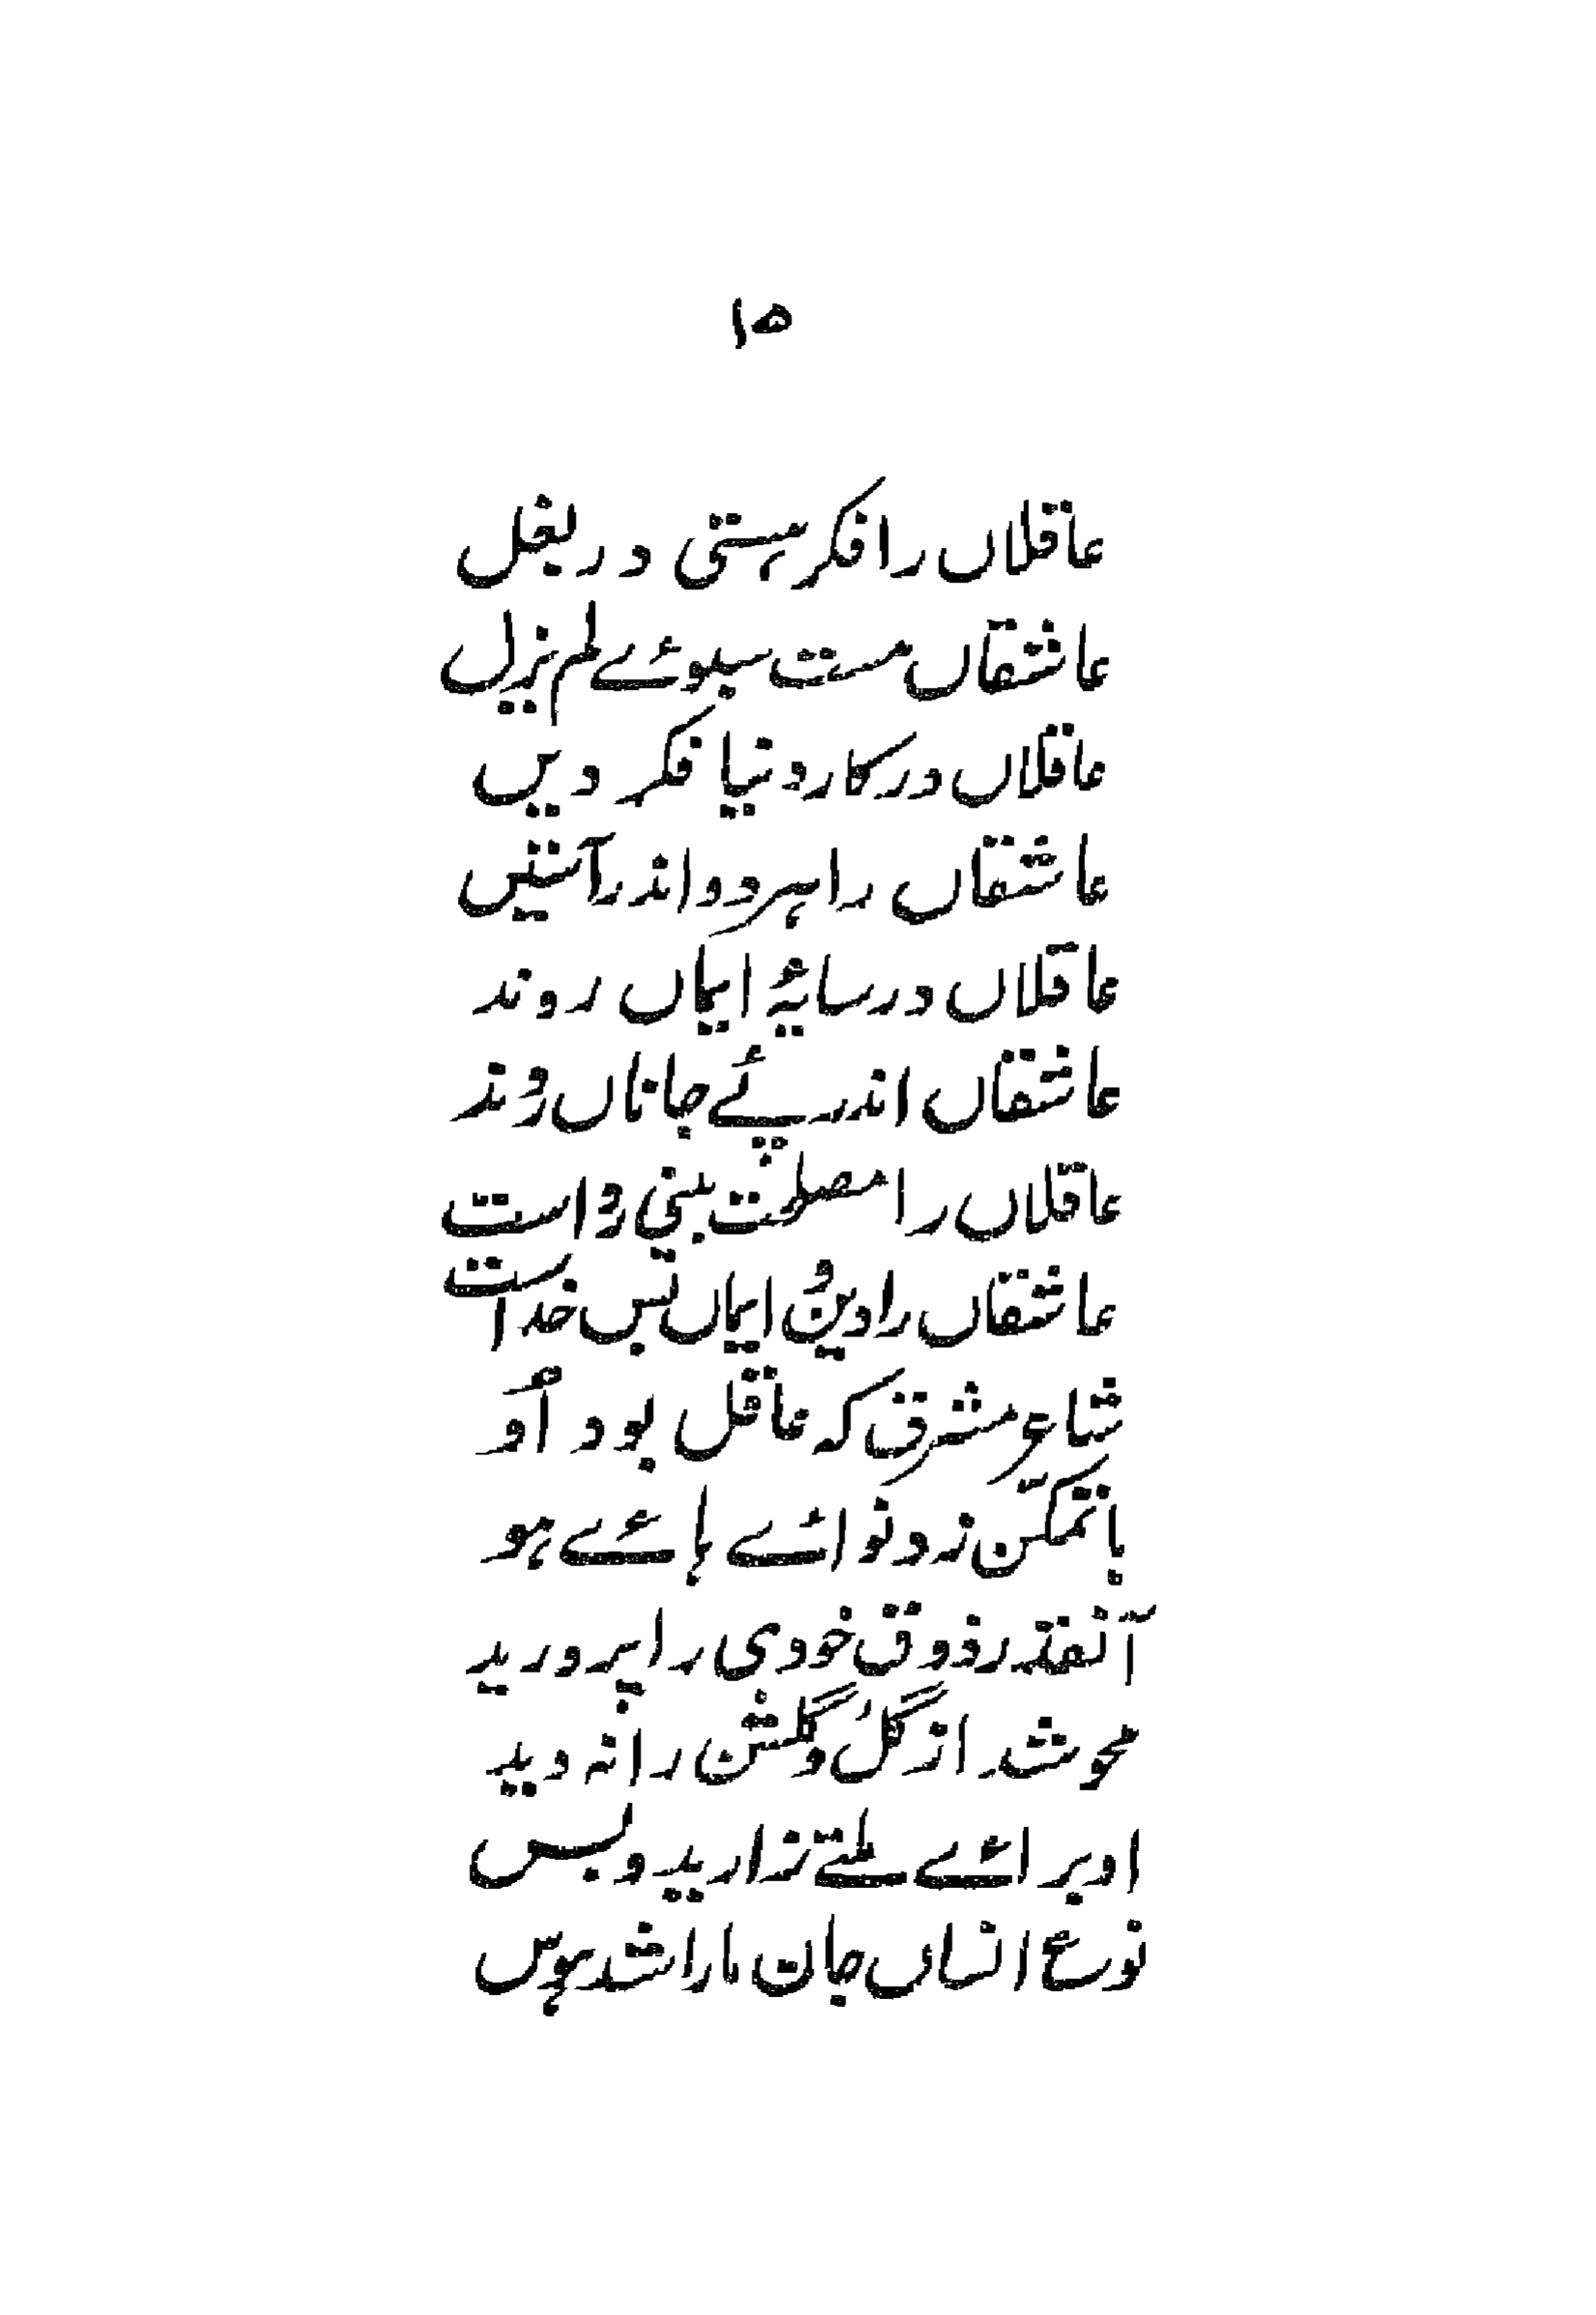 ۱۵
عاقلاں را فکر ہستی در بغل
عاشقاں مست سبوئے لم یزل
عاقلاں در کار دنیا فکر دیں
عاشقاں را ہر دو اندر آستیں
عاقلاں در سایۂ ایماں روند
عاشقاں اندر پئے جاناں رَوند
عاقلاں را مصلحت بینی رواست
عاشقاں را دین و ایماں بس خداست
شاعرِ مشرق کہ عاقل بود اُو
با تمکّن زد نوائے ہائے ہو
آنقدر ذوق خودی را پرورید
محو شد از گُل و گلشن را نہ دید
او برائے ملتے زارید و بس
نوع انساں جان ما را شد ہوس